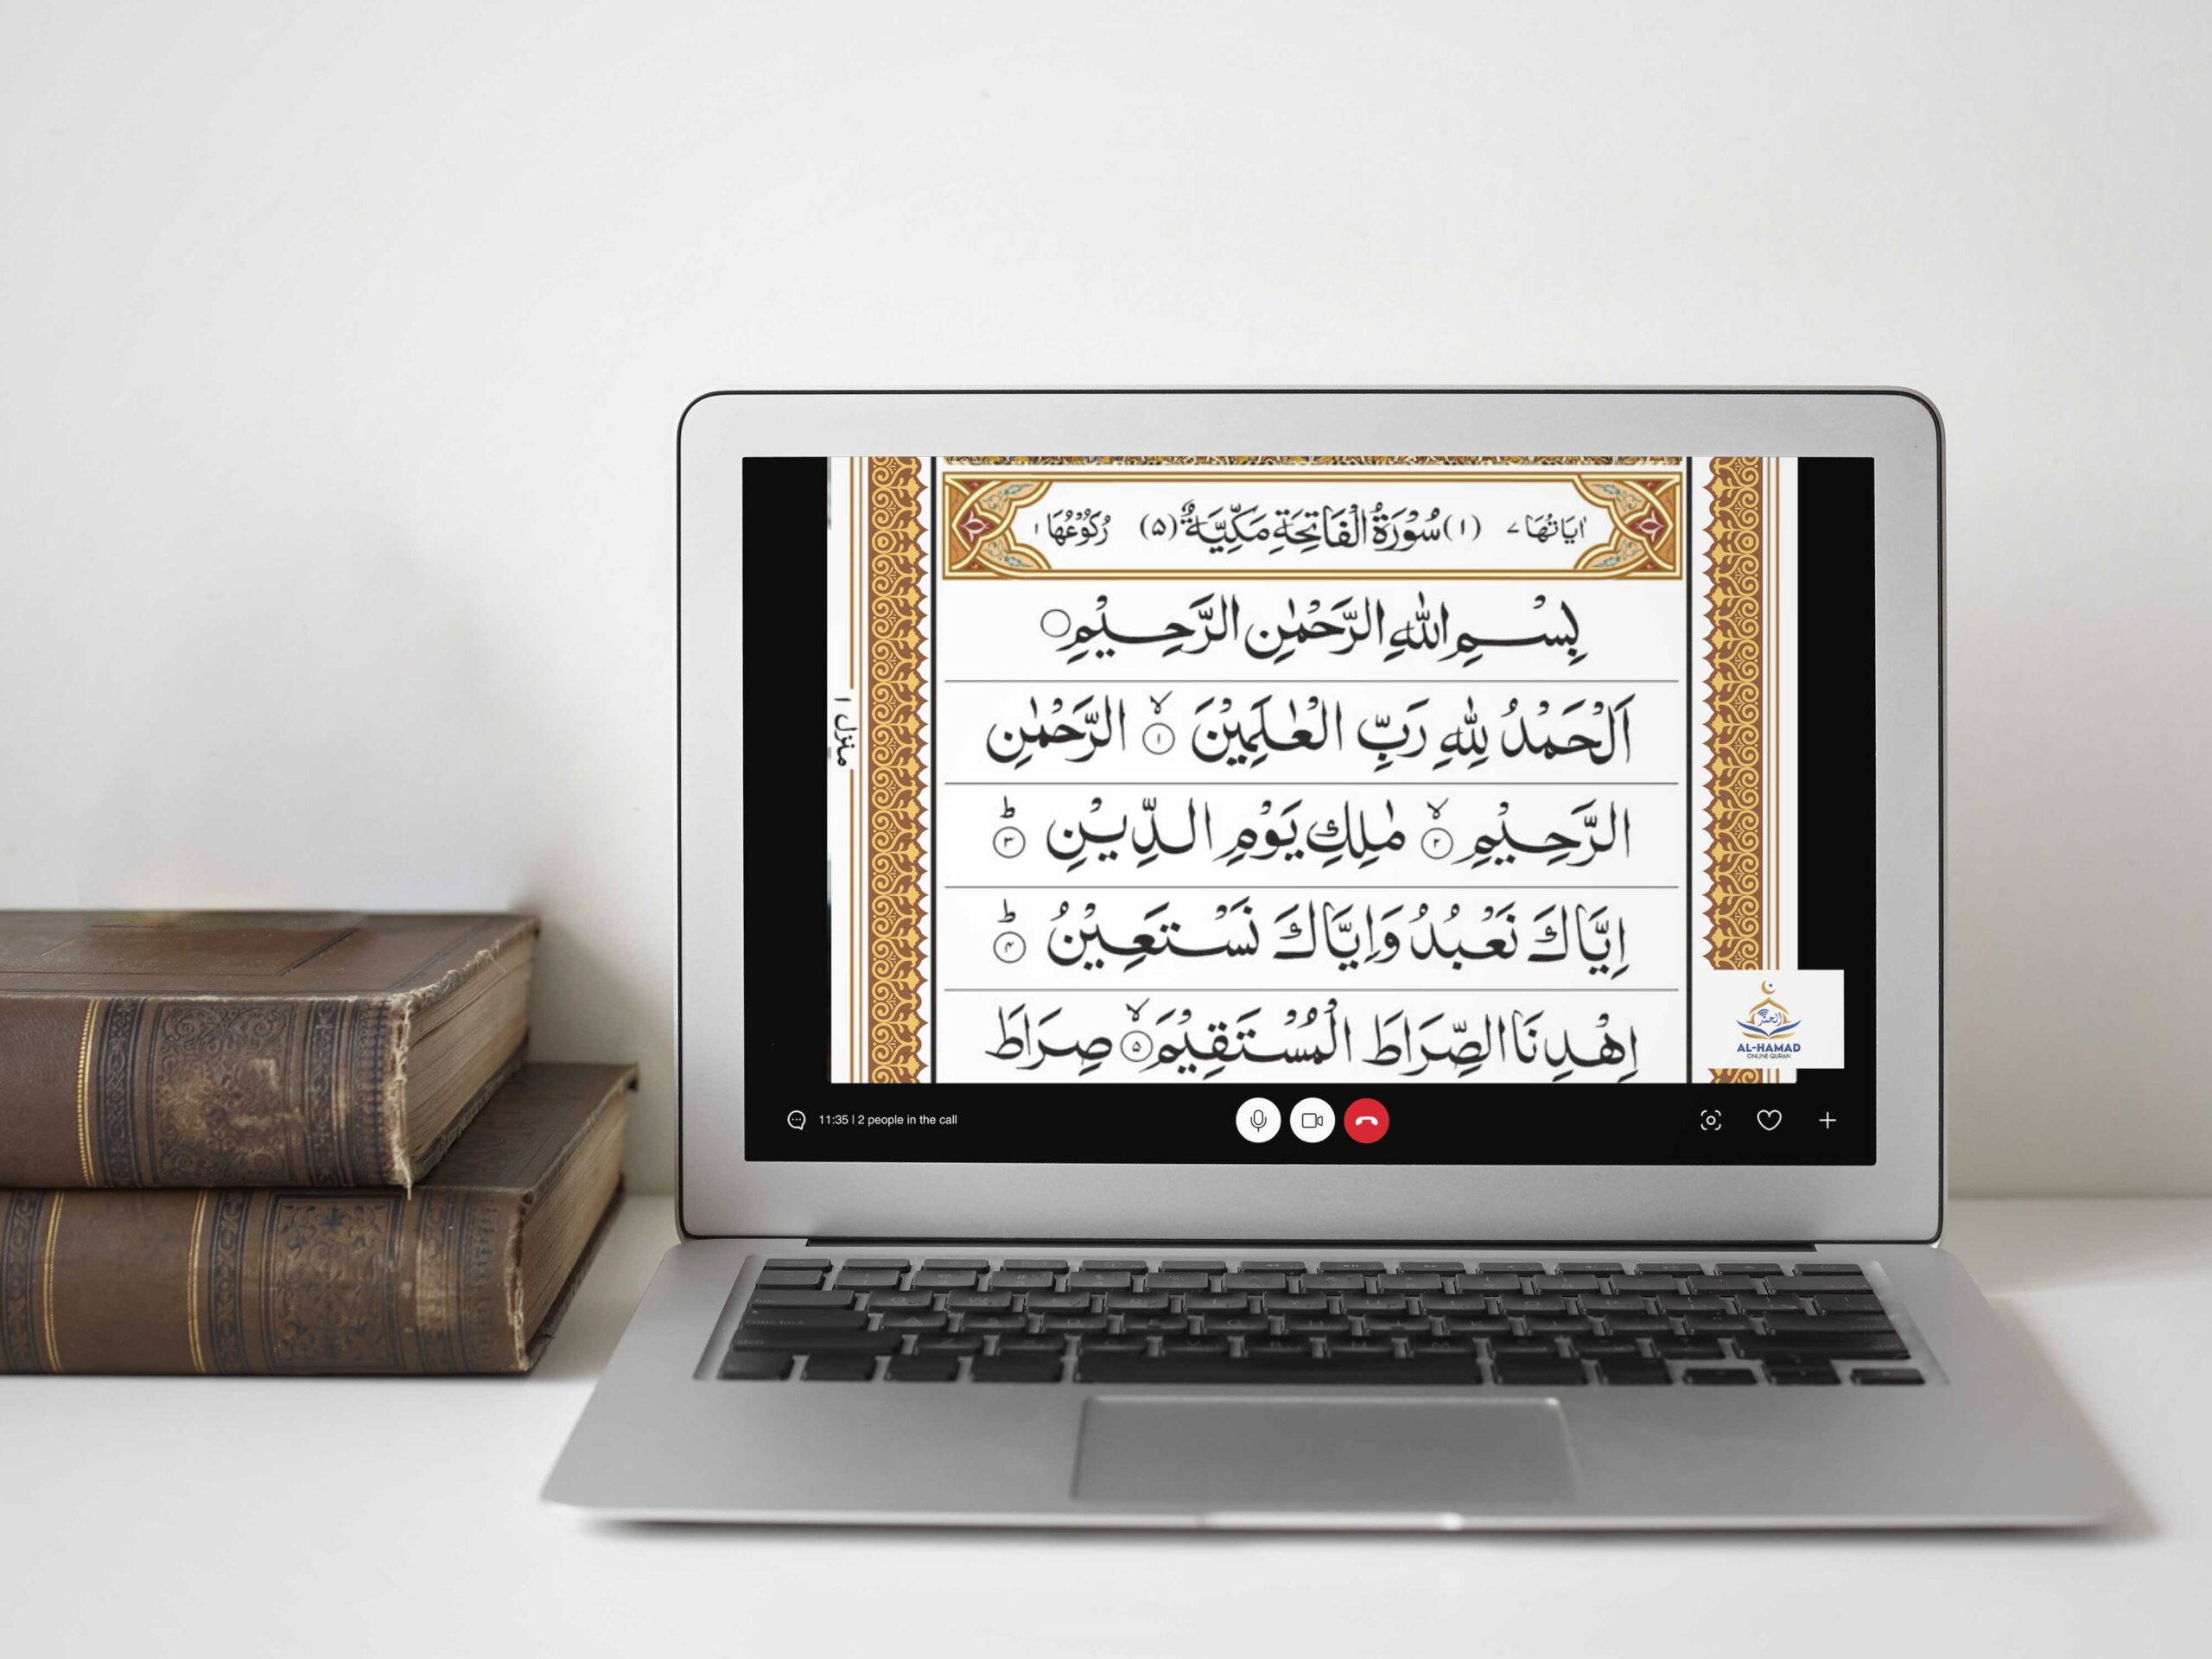 اٰيَاتُهَا ٧ (١) سُوْرَةُ الْفَاتِحَةِ مَكِّيَّةٌ (٥) رُكُوْعُهَا ١
بِسْمِ اللّٰهِ الرَّحْمٰنِ الرَّحِيْمِ
اَلْحَمْدُ لِلّٰهِ رَبِّ الْعٰلَمِيْنَ ۙ١ الرَّحْمٰنِ
الرَّحِيْمِ ۙ٢ مٰلِكِ يَوْمِ الدِّيْنِ ؕ٣
اِيَّاكَ نَعْبُدُ وَاِيَّاكَ نَسْتَعِيْنُ ؕ٤
اِهْدِنَا الصِّرَاطَ الْمُسْتَقِيْمَ ۙ٥ صِرَاطَ
منزل ١
الحمد
AL-HAMAD
ONLINE QURAN
11:35 | 2 people in the call